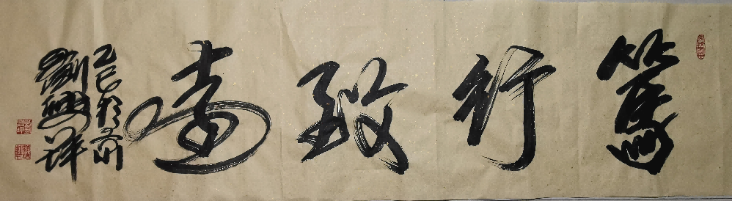 篤行致遠
乙巳於州
劉興祥